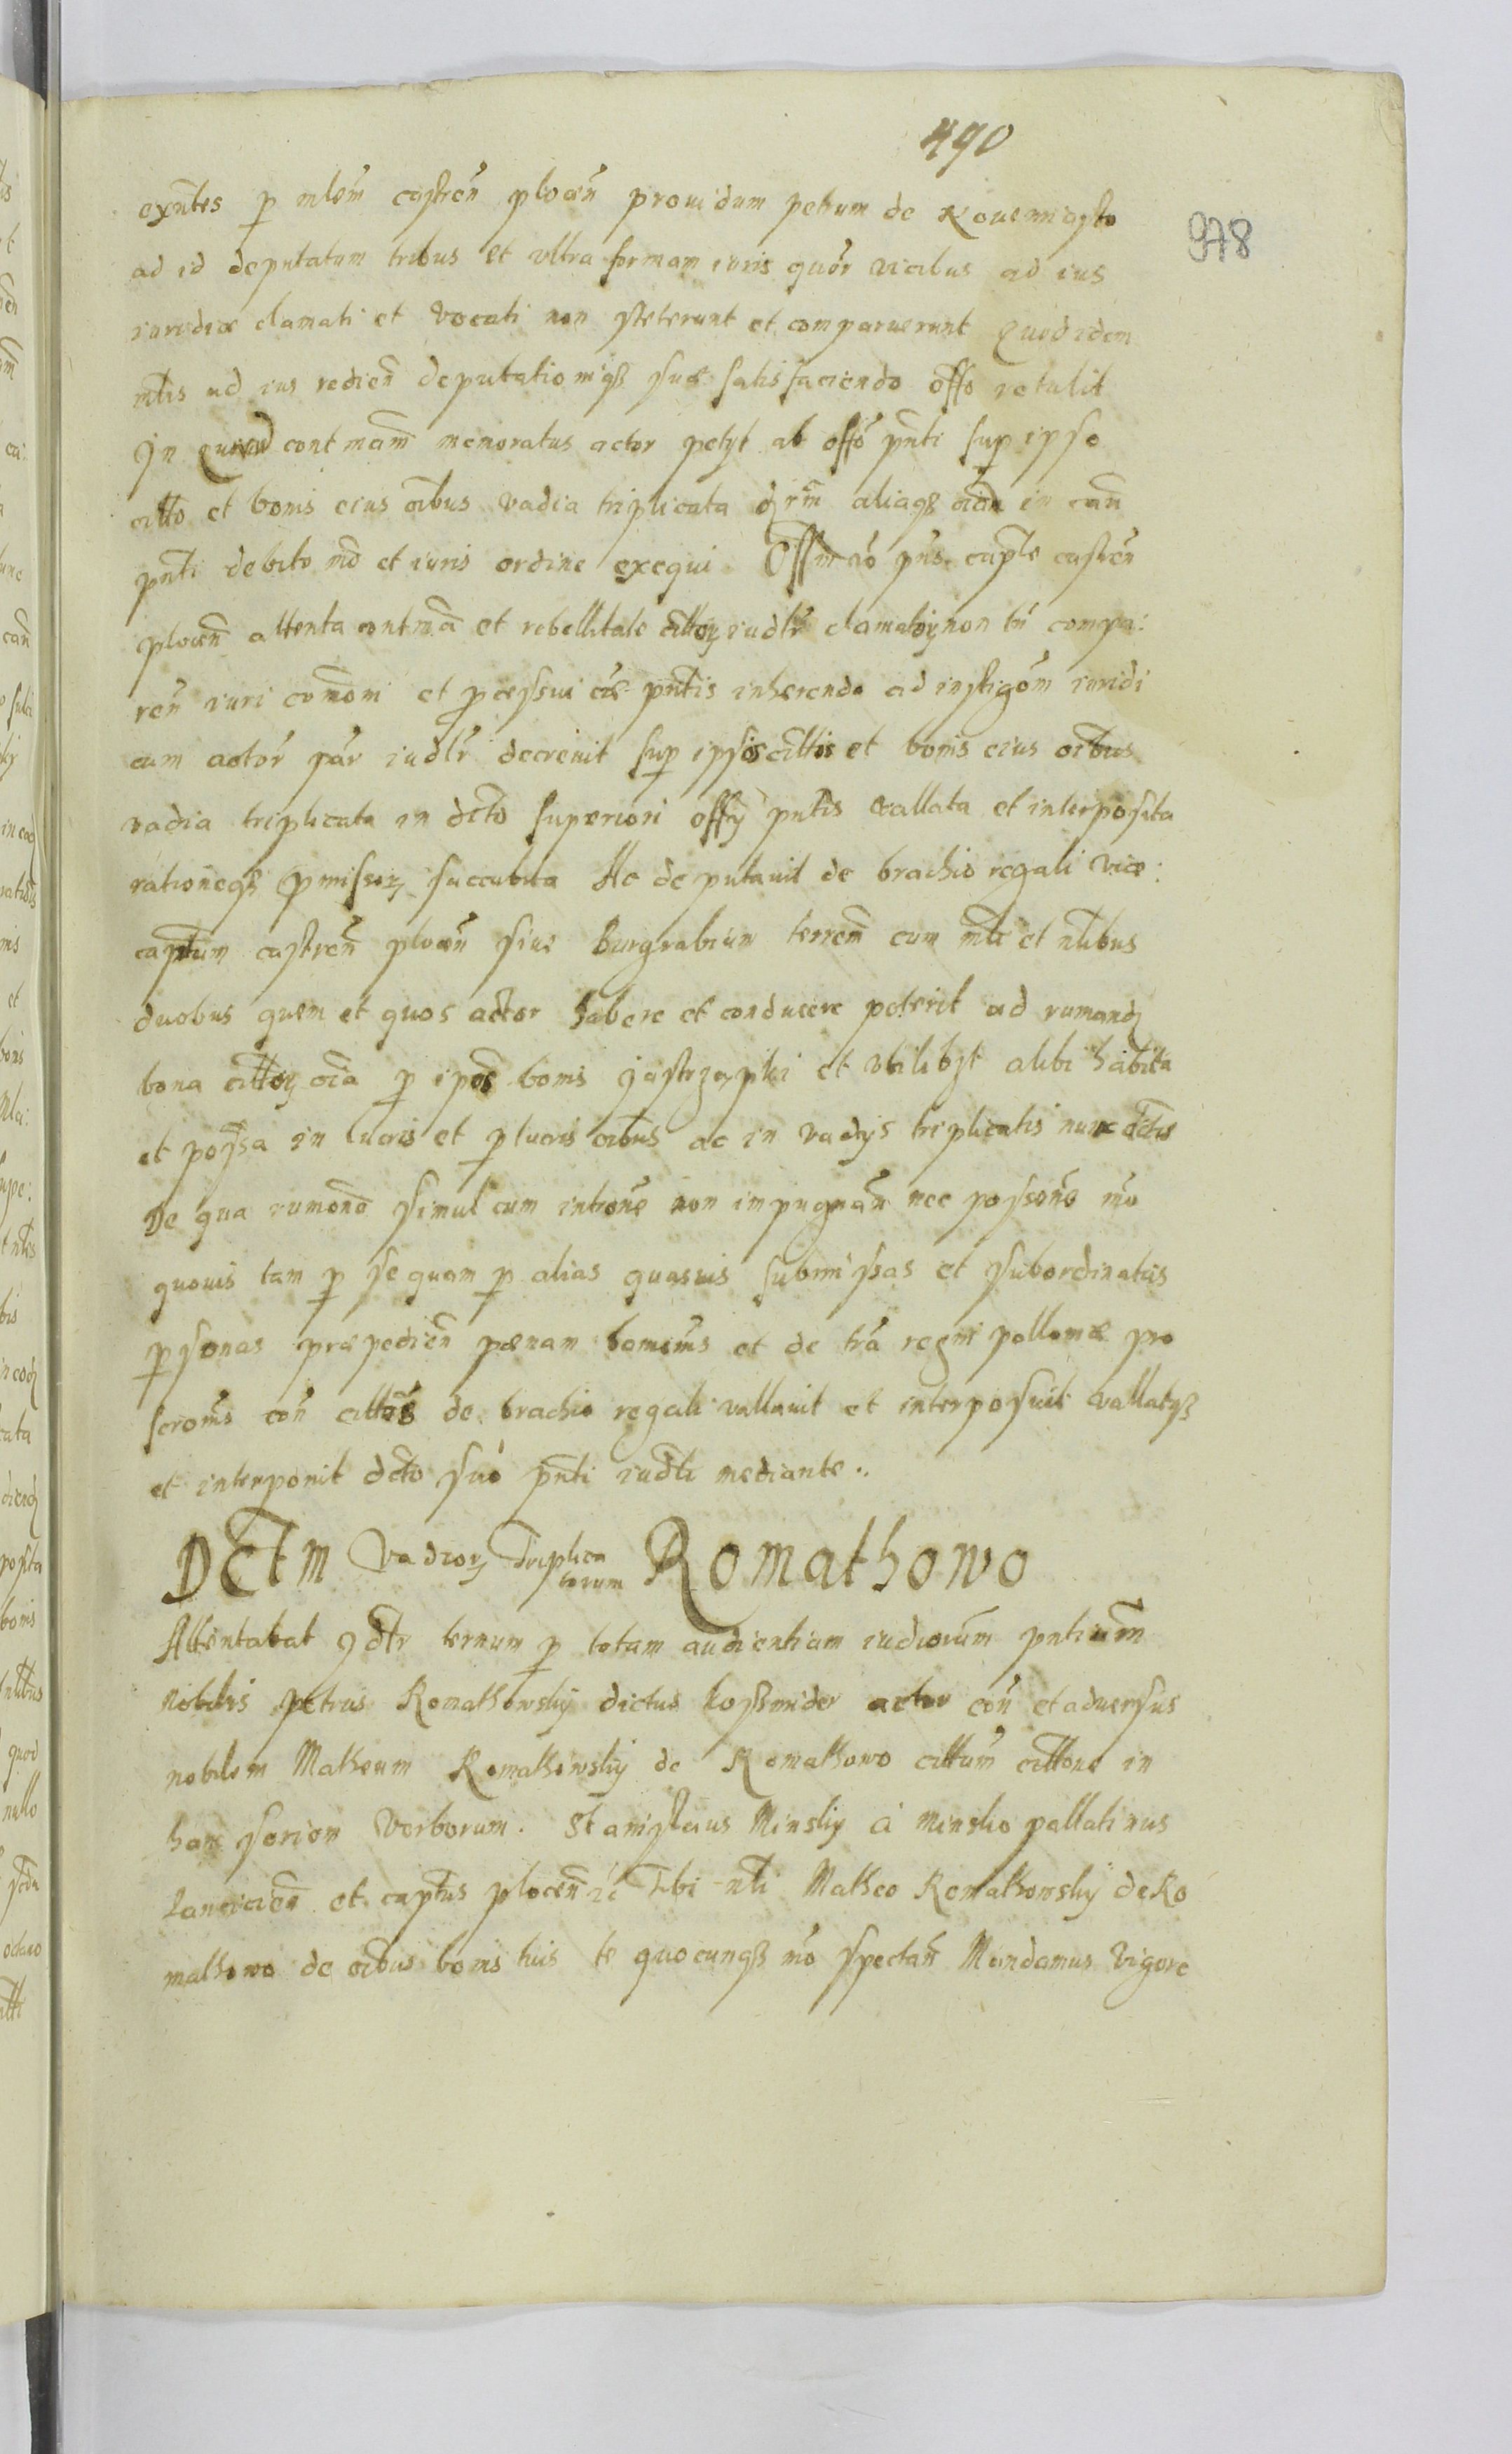 490
978
exn̄tes p mlēm castrēn plocēn prouidum petrum de Nouemiasto
ad id deputatum tribus et vltra formam iuris quōr vicibus ad ius
iuridice clamati et vocati non steterunt et comparuerunt Quod idem
mlis ad ius rediēn deputationiqz sue satisfaciendo offo retulit
In quorū contmām memoratus actor petyt ab offō pn̄ti sup ipso
citto et bonis eius oībus vadia triplicata dēr̄m aliaqz in cān
pn̄ti debito mō et iuris ordine exequi Offm v̄o pn̄s captle castrēn
plocēn attenta contmā et rebellitate citto iudlr clamato non tn̄ compa:
rēn iuri com̄oni et pcessui cāe pn̄tis inherendo ad instigōm iuridi
cam actōr pār iudlr decreuit sup ipsis cīttis et bonis eius oībus
vadia triplicata in dctō superiori offy pn̄tis vallata et interposita
rationeqz pmissorz succubita Ac deputauit de brachio regali vice:
captūm castrēn plocēn siue Burgrabium terrēm cum mlī et nlībus
duobus quem et quos actor habere et conducere poterit ad rumandz
bona cittorz oīa p ipōs bonis Jastrzapki et vbilibzt alibi habita
et possa in lucris et plucris oībus ac in vadys triplicatis nunc dctis
De qua rumonē simul cum intronē non impugnān nec possonē mō
quouis tam p se quam p alias quasuis submissas et subordinatas
psonas præpediēn pænam bamcmīs et de trā regni polloniæ pro
scronīs cōn cittōs de brachio regali vallauit et interposuit vallatqz
et interponit dctō suō pn̄ti iudlī mediante ..
Dctm Vadiorz Triplica
torum Romathowo
Attentabat qdtr ternum p totam audientiam iudiciorūm pn̄tiūm
Nobilis Petrus Romathowskÿ dictus kossmider actor cōn et aduersus
nobilem Matheum Romathowskÿ de Romathowo cittūm cittone in
hanc seriem verborum. Stanislaus Minskÿ à Minsko pallatinus
Lanciciēn et captus plocēn zc Tibi nlī Matheo Romathowskÿ de Ro
mathowo de oībus bonis tuis te quocunqz mō spectān Mandamus vigore